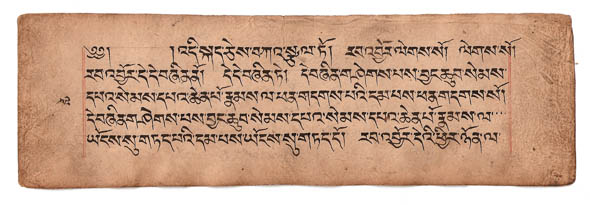 ༄༅། །འདི་སྐད་ཅེས་བཀའ་སྩལ་ཏོ། རབ་འབྱོར་ལེགས་སོ། ལེགས་སོ།
རབ་འབྱོར་དེ་དེ་བཞིན་ནོ། དེ་དེ་བཞིན་ཏེ། དེ་བཞིན་གཤེགས་པས་བྱང་ཆུབ་སེམས་
དཔའ་སེམས་དཔའ་ཆེན་པོ་རྣམས་ལ་ཕན་གདགས་པའི་དམ་པས་ཕན་གདགས་སོ།
དེ་བཞིན་གཤེགས་པས་བྱང་ཆུབ་སེམས་དཔའ་སེམས་དཔའ་ཆེན་པོ་རྣམས་ལ་
ཡོངས་སུ་གཏད་པའི་དམ་པས་ཡོངས་སུ་གཏད་དོ། རབ་འབྱོར་དེའི་ཕྱིར་ཉོན་ལ་